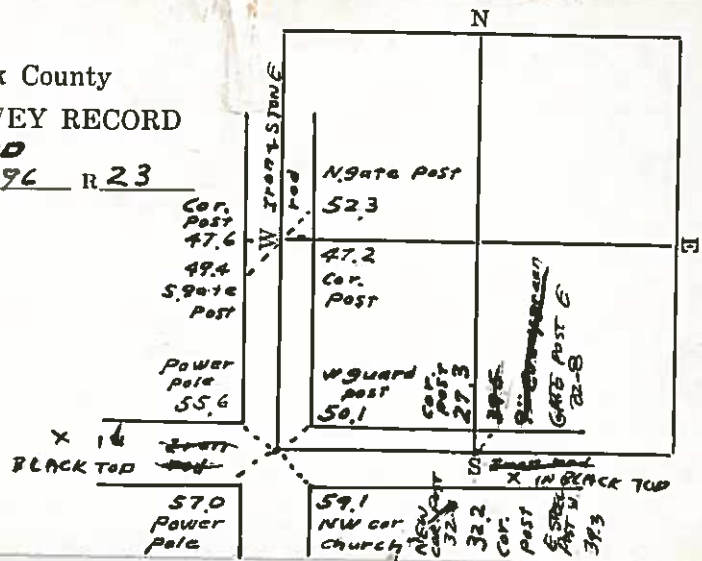 N
x County
VEY RECORD
96 R 23
Iron & STONE
rod
N.gate Post
52.3
Cor.
Post
47.6
W
E
49.4
S.gate
Post
47.2
Cor.
Post
Power
pole
55.6
W guard
post
50.1
Cor.
post
27.3
GATE POST E
22-8
X
BLACK TOP
Iron
Rod
S
X IN BLACK TOP
57.0
Power
pole
59.1
NW cor
church
NEW
COR. POST
32.2
cor.
post
POST W
39.3